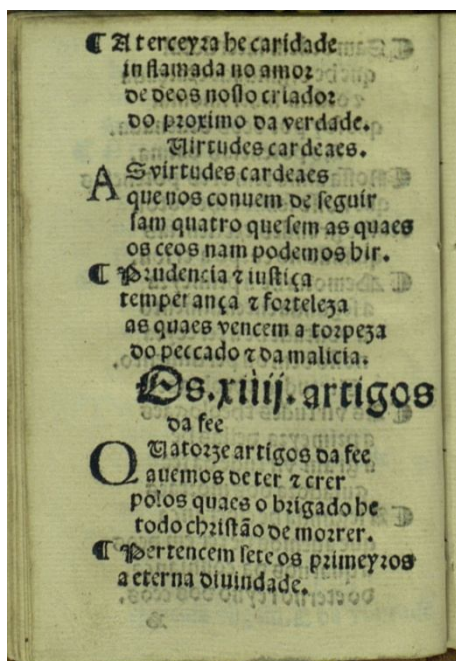 ¶ A terceyra he caridade
inflamada no amor
de deos nosso criador
do proximo da verdade.
Virtudes cardeaes.
AS virtudes cardeaes
que nos conuem de seguir
sam quatro que sem as quaes
os ceos nam podemos hir.
¶ Prudencia ⁊ iustiça
temperança ⁊ forteleza
as quaes vencem a torpeza
do peccado ⁊ da malicia.
Os .xiiij. artigos
da fee
QUatorze artigos da fee
auemos de ter ⁊ crer
polos quaes o brigado he
todo christão de morrer.
¶ Pertencem sete os primeyros
a eterna diuindade.